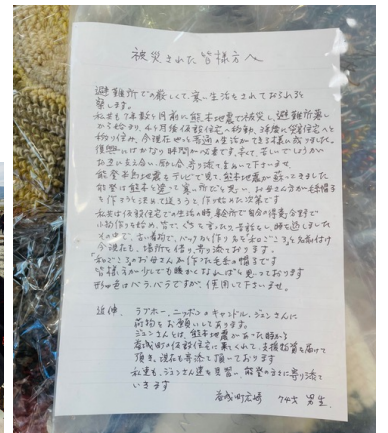 被災された皆様方へ
避難所での厳しくて、寒い生活をされておられると
察します。
私共も7年数ヶ月前に熊本地震で被災し、避難所暮し
から始まり、4ヶ月後仮設住宅へ移動、3年後に公営住宅へと
移り住み、今現在やっと普通の生活ができる様に成りました。
復興にはかなり時間が必要です。永くて、苦しいでしょうが
お互に支え合い、励し合、寄り添って
能登半島地震をテレビで見て、熊本地震が蘇ってきました
能登は熊本と違って寒い所だと思い、お母さん方が毛糸帽子
を作ろうと決めて
私共は仮設住宅での生活の時、集会所で自分の得意分野で
小物作りを始め、皆で、ぐちを言ったり、昔話をし、時を過しました
その中で、古い着物で、バックが作り
今現在も、場所を借り、寄り添っております。
のお母さんが作った毛糸の帽子です
皆様方が少しでも暖かくなればと思っております
形や色はバラバラですが、使用して下さいませ。
追伸、ラブホー、ニッポンのキャンドル、ジュンさんに
荷物をお願いしてあります。
ジュンさんとは、熊本地震があった時から
益城町の仮設住宅に来てくれて、支援物資を届けて
頂き、現在も寄添って頂いております
私達も、ジュンさん達を見習い、能登の方々に寄り添って
いきます
益城町広崎 74才 男性